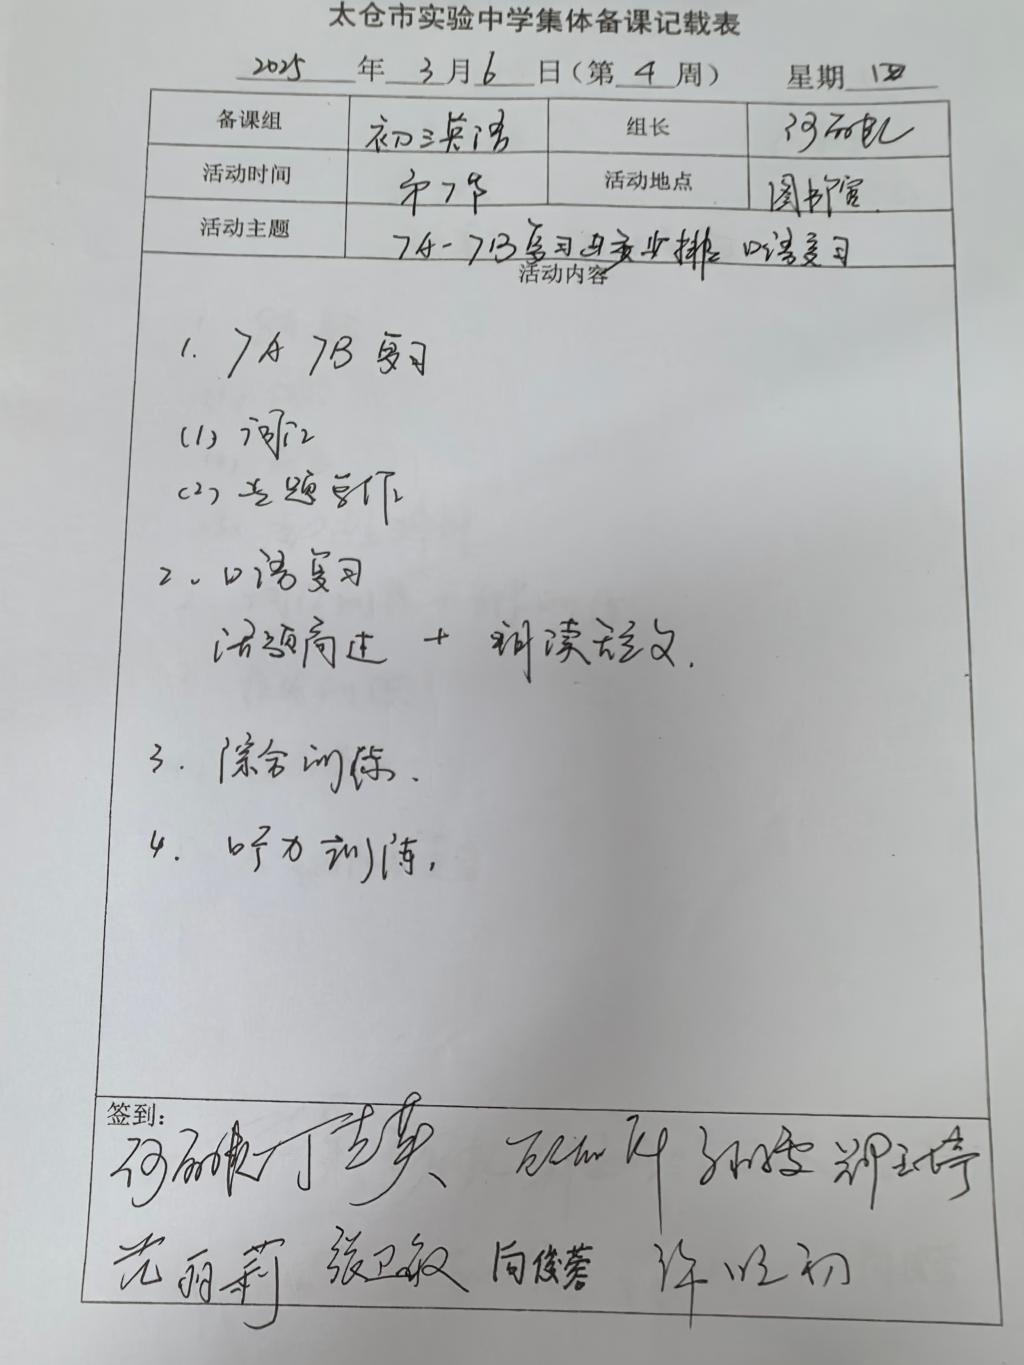 太仓市实验中学集体备课记载表
2025 年 3 月 6 日（第 4 周） 星期 四
备课组 初三英语 组长
活动时间 第7节 活动地点 图书馆
活动主题 7A-7B复习 口语复习
活动内容
1. 7A 7B 复习
(1) 词汇
(2) 主题写作
2. 口语复习
话题简述 + 朗读短文.
3. 综合训练.
4. 听力训练.
签到:
丁志英
范丽莉 张卫敏 向俊蓉